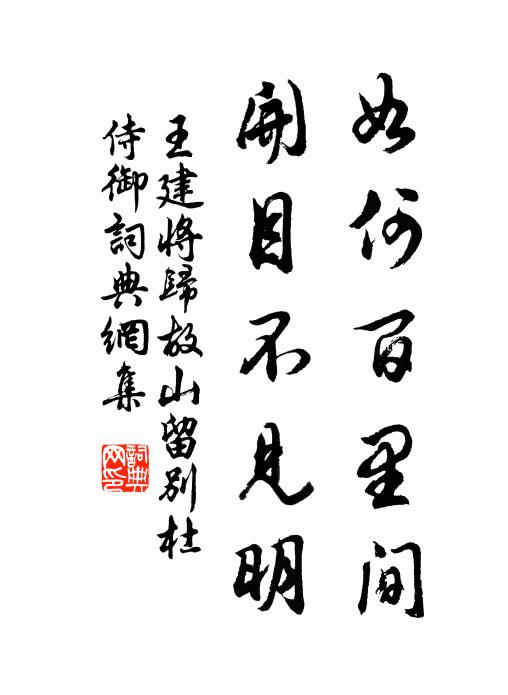 如何百里間
開目不見明
王建將歸故山留別杜
侍御詞典網集
詞典网印